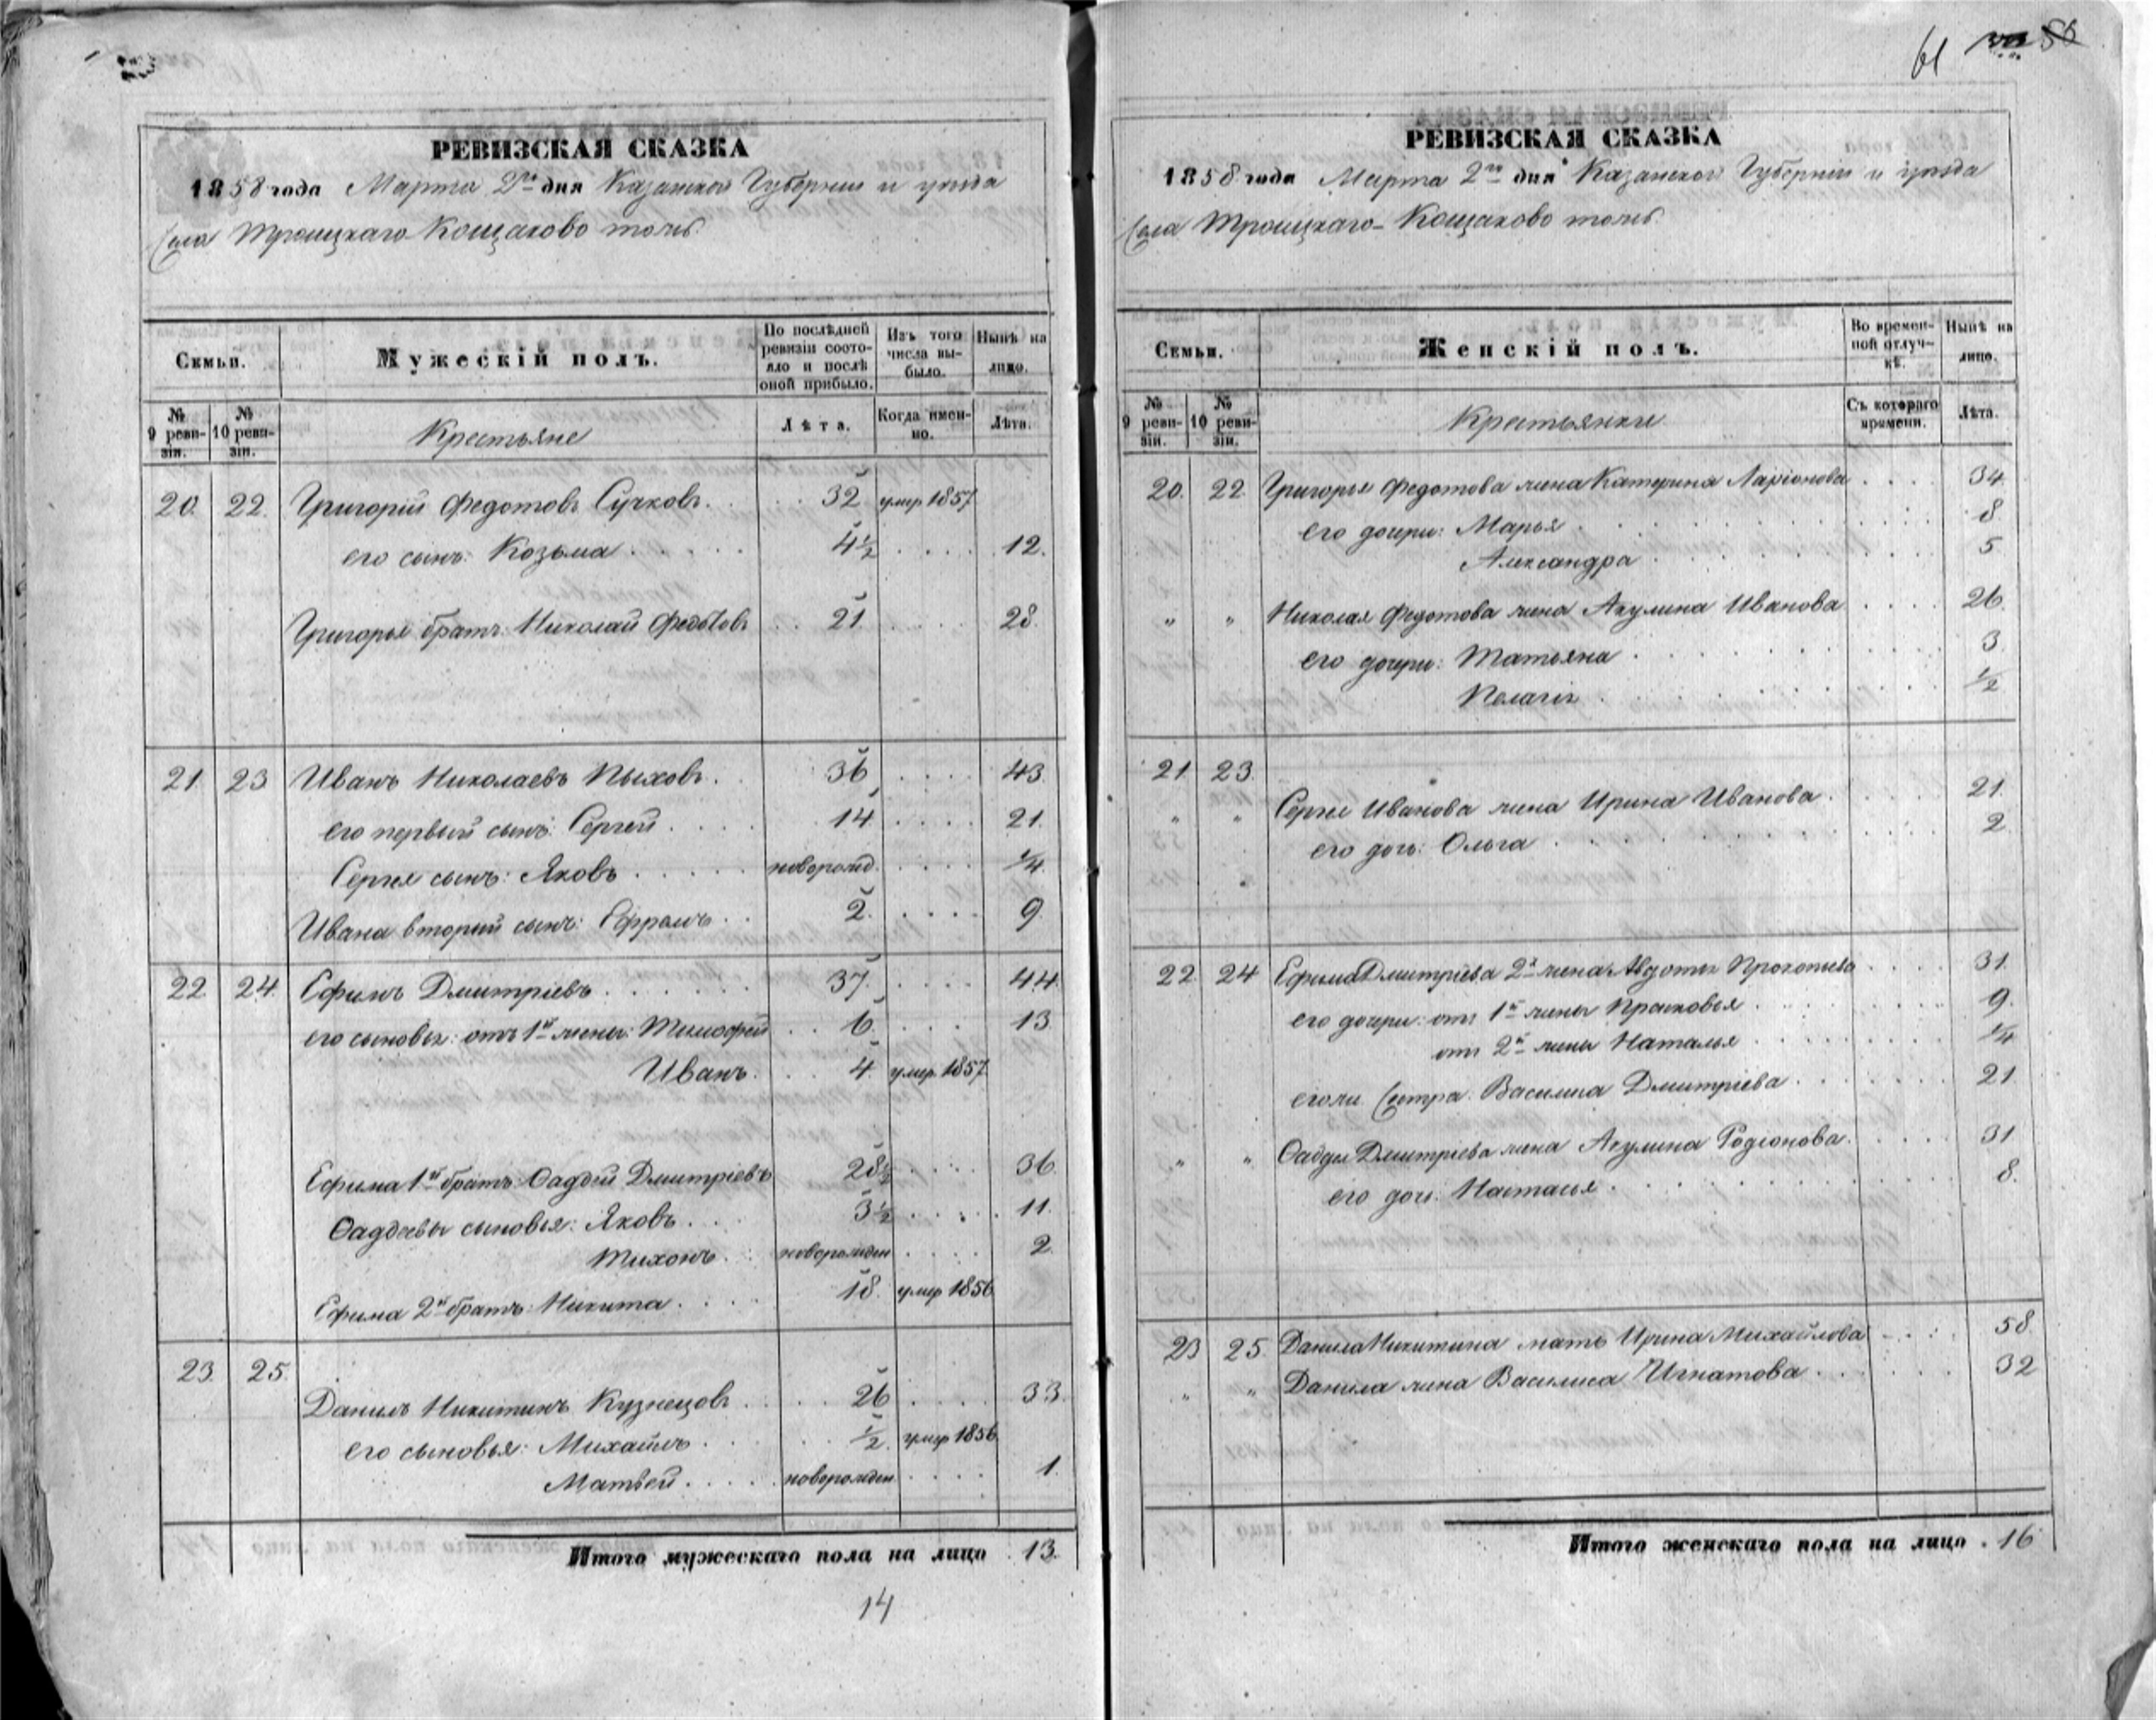 61 58
РЕВИЗСКАЯ СКАЗКА
1858 года Марта 2го дня Казанской Губернии и уезда
Села Троицкаго-Кощаково тожъ
Семьи.
Мужескій полъ.
По послѣдней ревизіи состояло и послѣ оной прибыло.
Изъ того числа выбыло.
Нынѣ на лицо.
№ 9 ревизіи.
№ 10 ревизіи.
Крестьяне
Лѣта.
Когда именно.
Лѣта.
20. 22. Григорій Федотовъ Сучковъ. 32 умер 1857
его сынъ: Козьма 4½ 12.
Григорья братъ Николай Федотовъ 21 28.
21. 23 Иванъ Николаевъ Пыховъ. 36 43.
его первый сынъ: Сергей 14 21.
Сергея сынъ: Яковъ новорожд. ¼
Ивана вторый сынъ: Ефремъ 2. 9.
22 24. Ефимъ Дмитріевъ 37. 44.
его сыновья: отъ 1й жены: Тимофей 6. 13.
Иванъ. 4. умер. 1857
Ефима 1й братъ Фаддей Дмитріевъ 28½ 36.
Фаддеевы сыновья: Яковъ 3½ 11.
Тихонъ новорожден 2.
Ефима 2й братъ: Никита 18. умер 1856
23. 25.
Данилъ Никитинъ Кузнецовъ 26 33.
его сыновья: Михаилъ ½ умер 1856
Матвей новорожден 1.
Итого мужескаго пола на лицо 13.
14
РЕВИЗСКАЯ СКАЗКА
1858 года Марта 2го дня Казанской Губерніи и уезда
Села Троицкаго-Кощаково тожъ
Семьи.
Женскій полъ.
Во временной отлучкѣ.
Нынѣ на лицо.
№ 9 ревизіи.
№ 10 ревизіи.
Крестьянки
Съ котораго времени.
Лѣта.
20. 22. Григорья Федотова жена Катерина Ларіонова 34
его дочери: Марья 8
Александра 5
" " Николая Федотова жена Акулина Иванова 26.
его дочери: Татьяна 3
Пелагия ½
21 23.
" " Сергея Иванова жена Ирина Иванова 21.
его дочь: Ольга 2
22 24 Ефима Дмитріева 2я жена Авдотья Прокопьева 31.
его дочери: отъ 1й жены Прасковья 9.
отъ 2й жены Наталья ¼
его же Сестра: Василиса Дмитріева 21.
" " Фаддея Дмитріева жена Акулина Родіонова 31
его дочь: Настасья 8.
23 25. Данила Никитина мать Ирина Михайлова 58.
" " Данила жена Василиса Игнатова 32
Итого женскаго пола на лицо 16